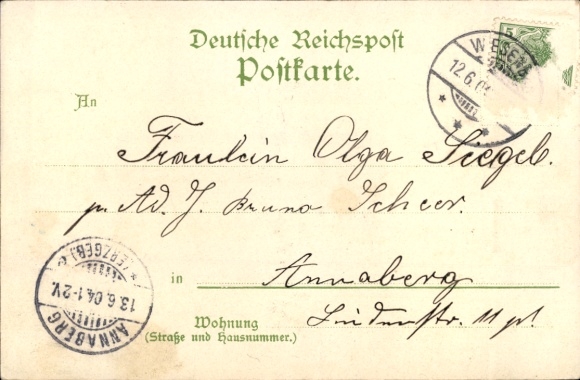 Deutsche Reichspost
Postkarte.
5
12.6.04
An
Fräulein Olga Siegel.
p. Ad. J. Bruno Scheer.
in Annaberg
Wohnung
(Straße und Hausnummer.)
Lindenstr. 11 pt.
ANNABERG
(ERZGEB.)
13.6.04.1-2V.